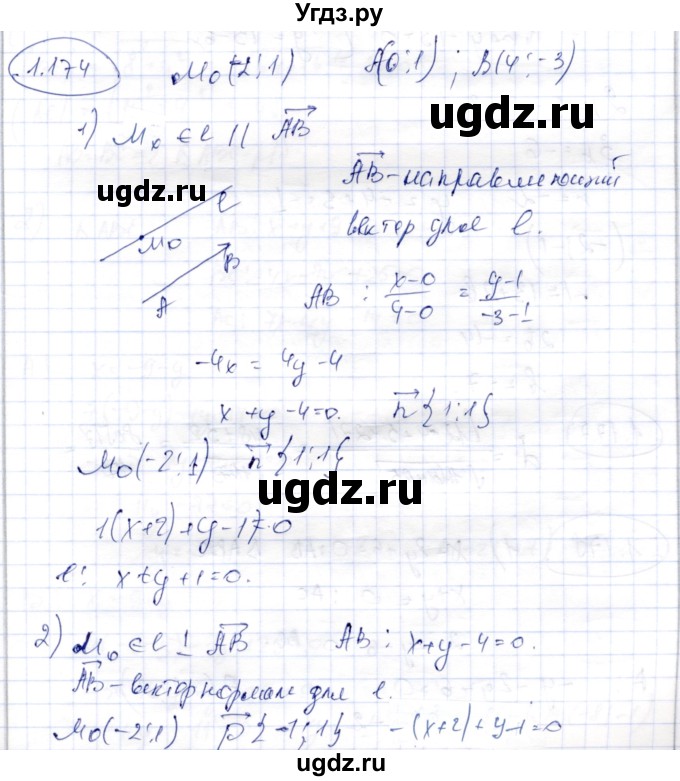 Угдз.ру
1.174 M₀(-2;1) A(0;1) ; B(4;-3)
1) M₀ ∈ l || AB
ugdz.ru
AB - направляющий
вектор для l.
ugdz.ru
l
M₀
B
A
AB : x-0/4-0 = y-1/-3-1
-4x = 4y-4
x+y-4=0. n{1;1}
M₀(-2;1) n{1;1}
ugdz.ru
1(x+2)+y-1=0
l: x+y+1=0.
2) M₀ ∈ l ⊥ AB AB : x+y-4=0.
AB - вектор нормали для l.
M₀(-2;1) p{-1;1} -(x+2)+y-1=0
ugdz.ru